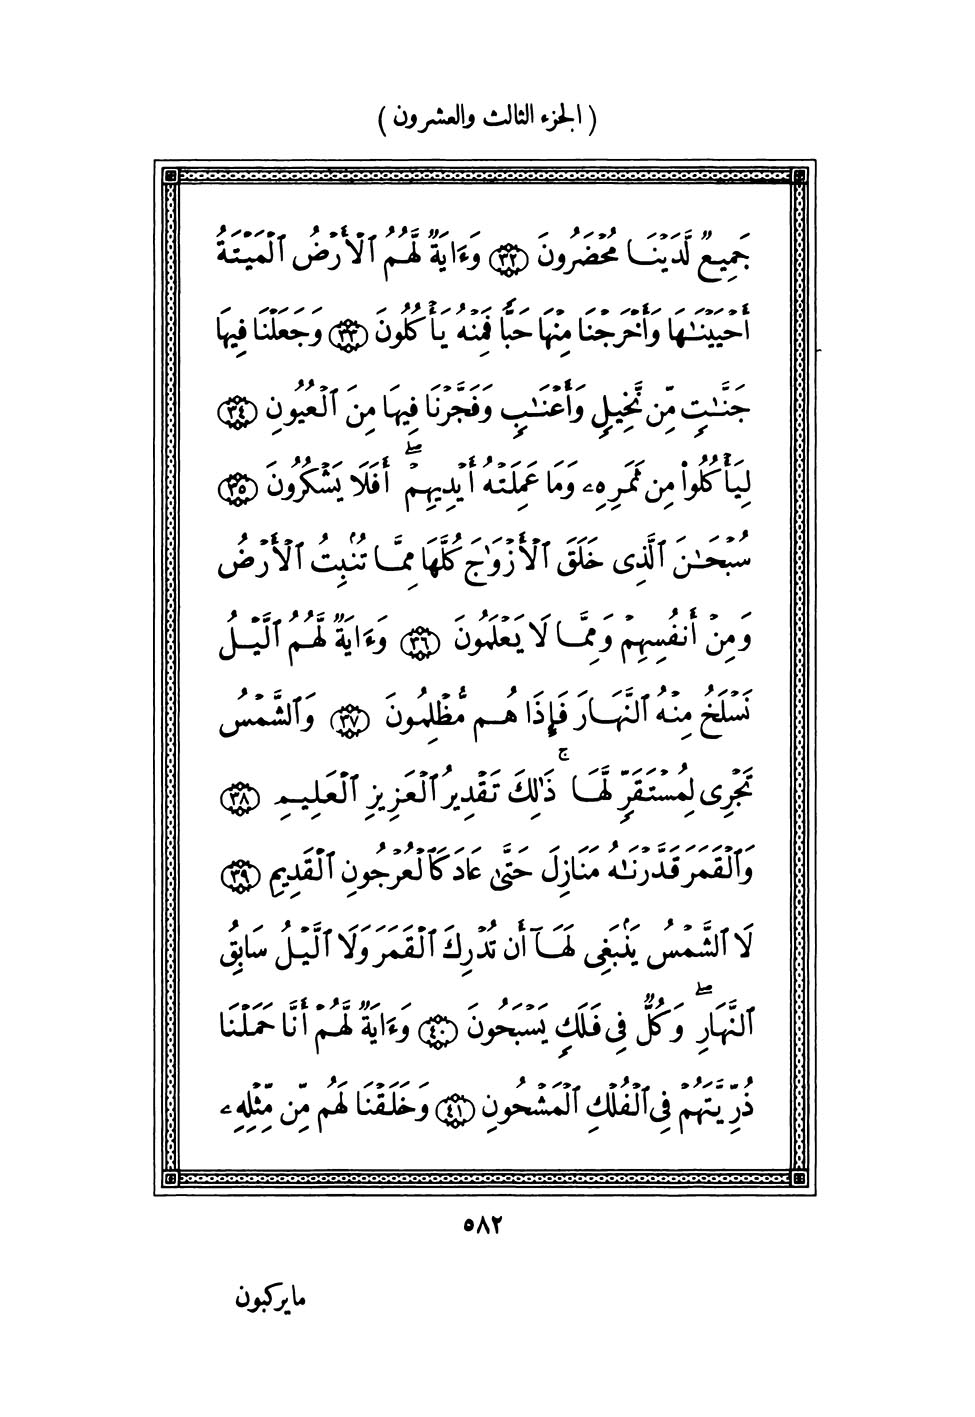 ( الجزء الثالث والعشرون )
جَمِيعٌ لَّدَيْنَا مُحْضَرُونَ ٣٢ وَءَايَةٌ لَّهُمُ ٱلْأَرْضُ ٱلْمَيْتَةُ
أَحْيَيْنَـٰهَا وَأَخْرَجْنَا مِنْهَا حَبًّا فَمِنْهُ يَأْكُلُونَ ٣٣ وَجَعَلْنَا فِيهَا
جَنَّـٰتٍ مِّن نَّخِيلٍ وَأَعْنَـٰبٍ وَفَجَّرْنَا فِيهَا مِنَ ٱلْعُيُونِ ٣٤
لِيَأْكُلُوا۟ مِن ثَمَرِهِۦ وَمَا عَمِلَتْهُ أَيْدِيهِمْ ۖ أَفَلَا يَشْكُرُونَ ٣٥
سُبْحَـٰنَ ٱلَّذِى خَلَقَ ٱلْأَزْوَٰجَ كُلَّهَا مِمَّا تُنۢبِتُ ٱلْأَرْضُ
وَمِنْ أَنفُسِهِمْ وَمِمَّا لَا يَعْلَمُونَ ٣٦ وَءَايَةٌ لَّهُمُ ٱلَّيْلُ
نَسْلَخُ مِنْهُ ٱلنَّهَارَ فَإِذَا هُم مُّظْلِمُونَ ٣٧ وَٱلشَّمْسُ
تَجْرِى لِمُسْتَقَرٍّ لَّهَا ۚ ذَٰلِكَ تَقْدِيرُ ٱلْعَزِيزِ ٱلْعَلِيمِ ٣٨
وَٱلْقَمَرَ قَدَّرْنَـٰهُ مَنَازِلَ حَتَّىٰ عَادَ كَٱلْعُرْجُونِ ٱلْقَدِيمِ ٣٩
لَا ٱلشَّمْسُ يَنۢبَغِى لَهَآ أَن تُدْرِكَ ٱلْقَمَرَ وَلَا ٱلَّيْلُ سَابِقُ
ٱلنَّهَارِ ۖ وَكُلٌّ فِى فَلَكٍ يَسْبَحُونَ ٤٠ وَءَايَةٌ لَّهُمْ أَنَّا حَمَلْنَا
ذُرِّيَّتَهُمْ فِى ٱلْفُلْكِ ٱلْمَشْحُونِ ٤١ وَخَلَقْنَا لَهُم مِّن مِّثْلِهِۦ
٥٨٢
مايركبون